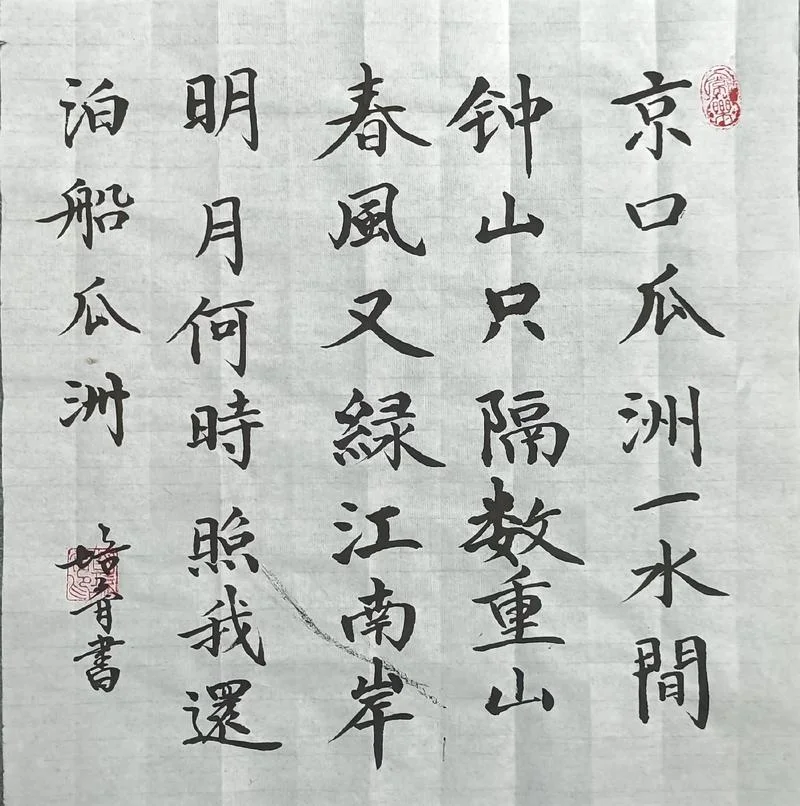 京口瓜洲一水間
钟山只隔数重山
春風又緑江南岸
明月何時照我還
泊船瓜洲
培育書